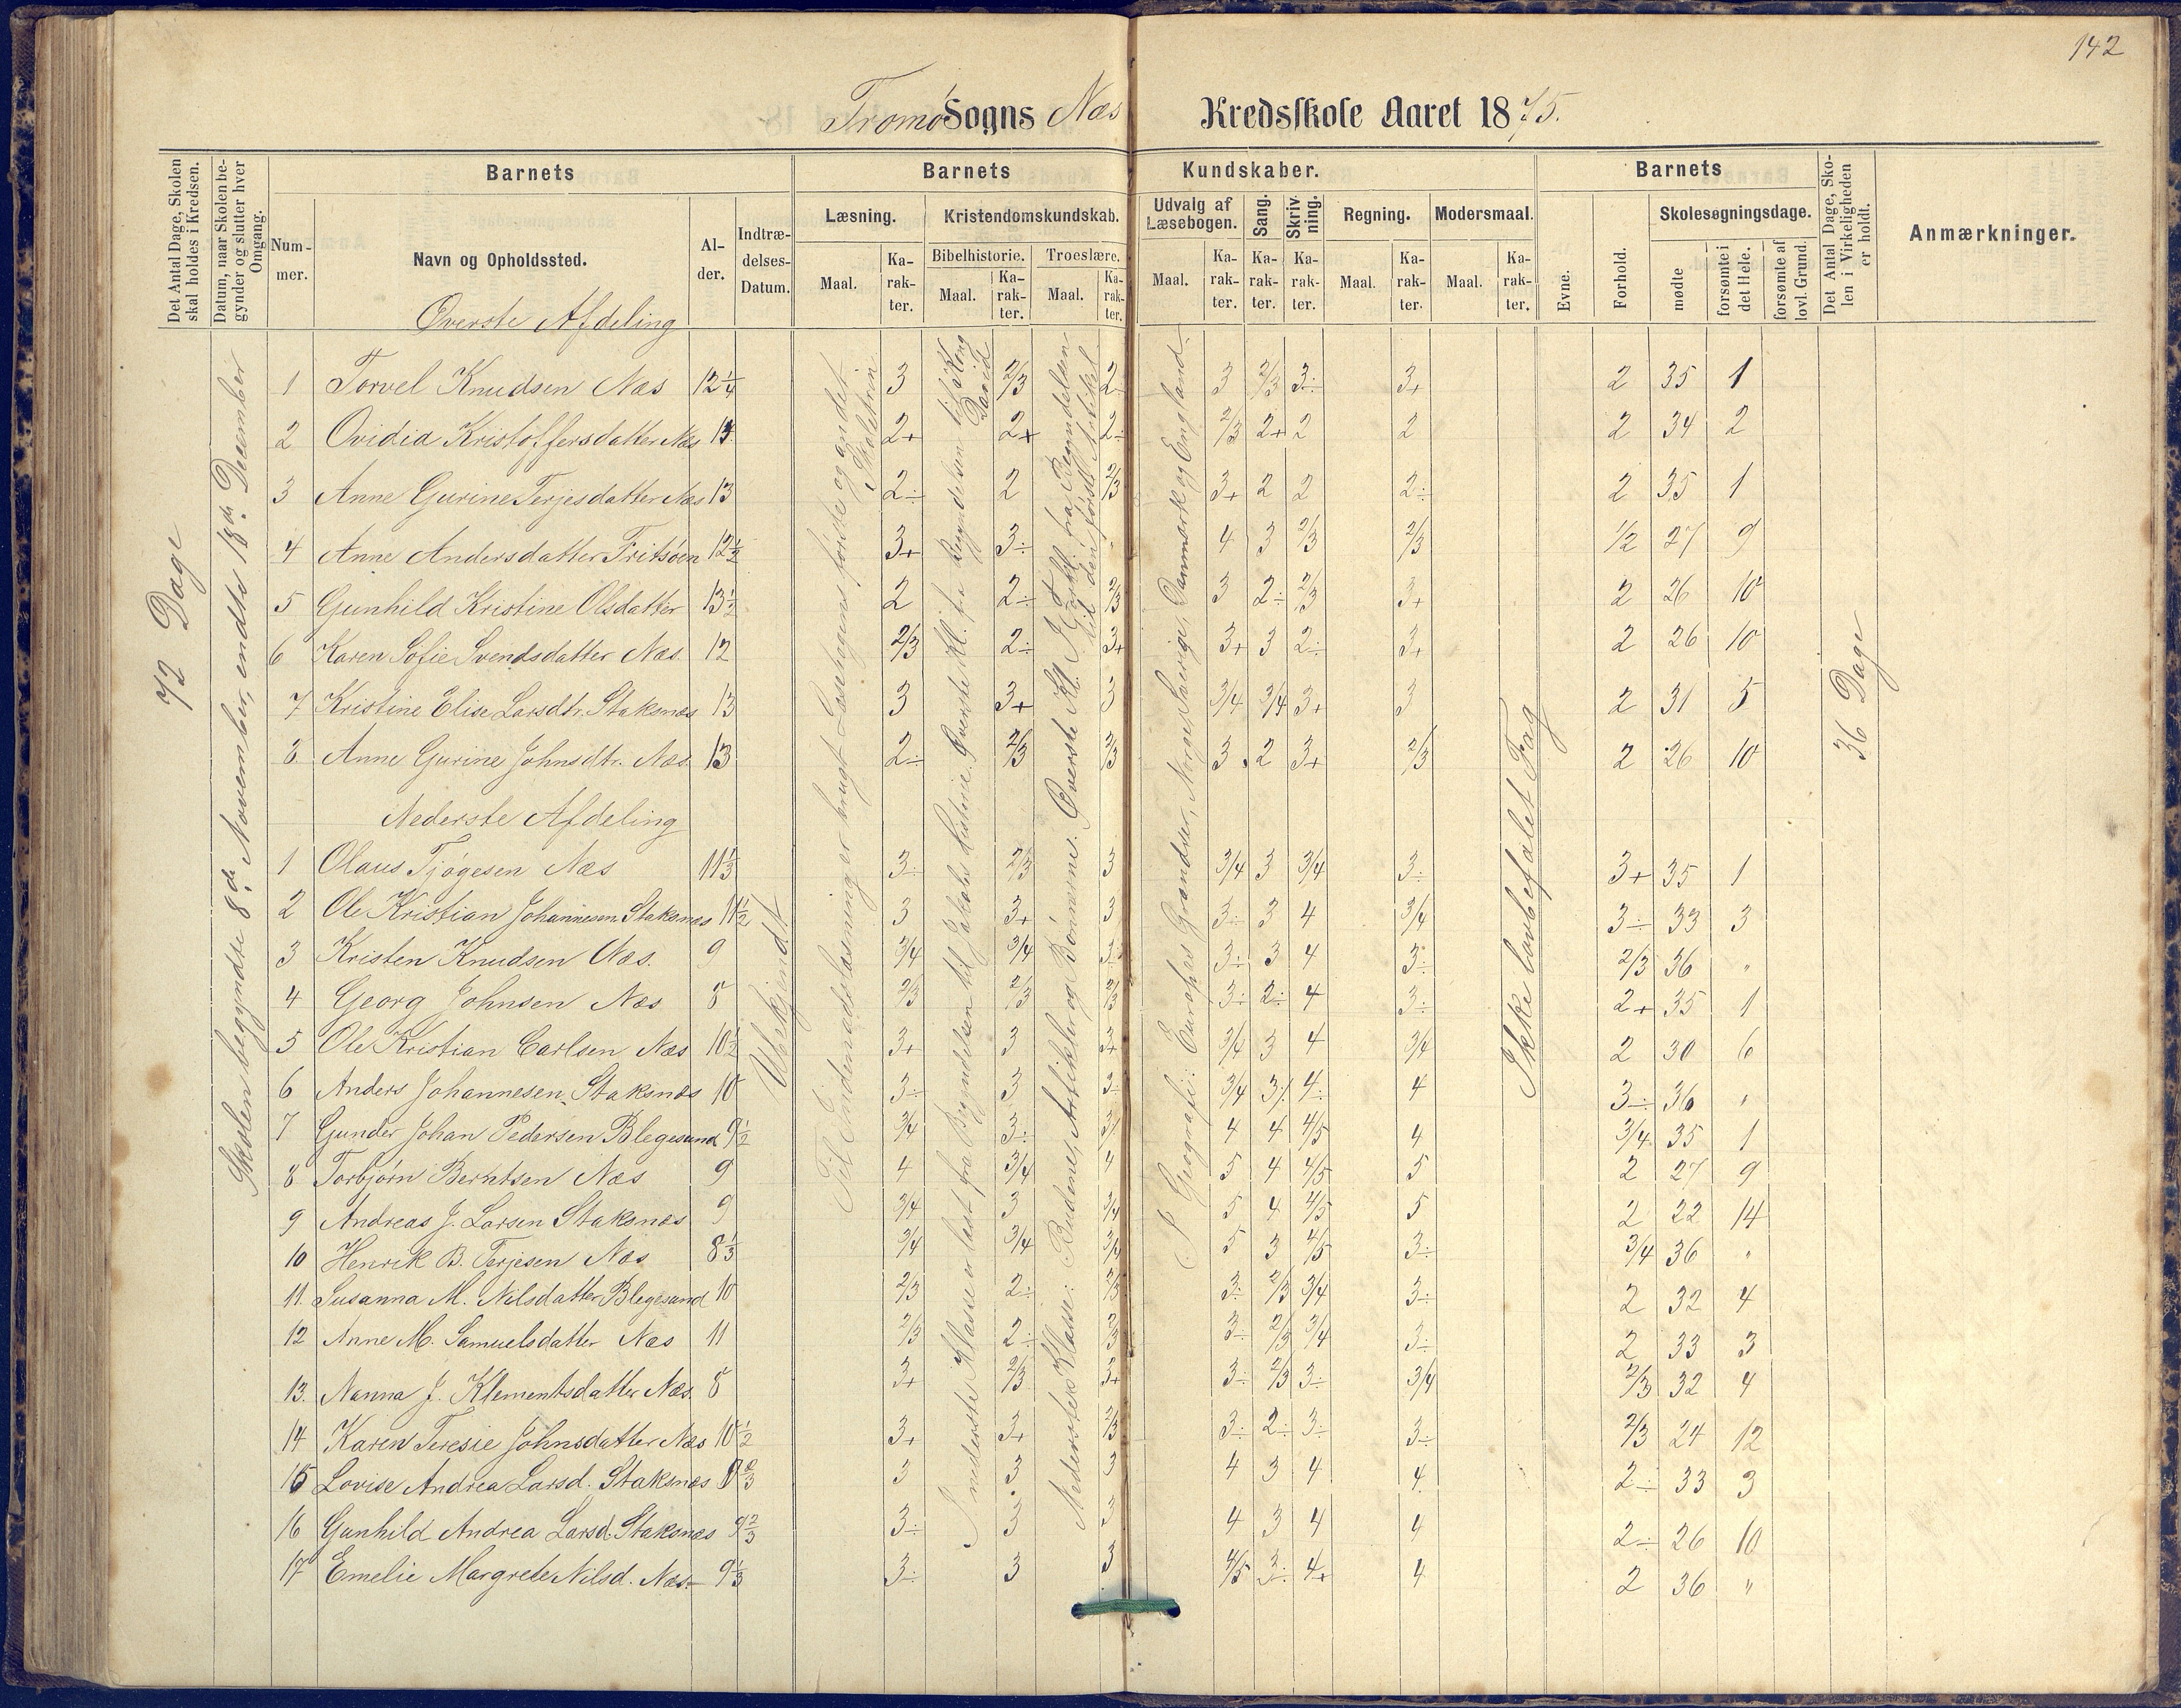 142
Tromø Sogns Næs Kredsskole Aaret 1875.
Det Antal Dage, Skolen skal holdes i Kredsen.
Datum, naar Skolen begynder og slutter hver Omgang.
Barnets
Nummer.
Navn og Opholdssted.
Alder.
Indtrædelses-Datum.
Barnets Kundskaber.
Læsning.
Maal.
Karakter.
Kristendomskundskab.
Bibelhistorie.
Maal.
Karakter.
Troeslære.
Maal.
Karakter.
Udvalg af Læsebogen.
Maal.
Karakter.
Sang.
Karakter.
Skrivning.
Karakter.
Regning.
Maal.
Karakter.
Modersmaal.
Maal.
Karakter.
Barnets
Evne.
Forhold.
Skolesøgningsdage.
mødte
forsømte i det Hele.
forsømte af lovl. Grund.
Det Antal Dage, Skolen i Virkeligheden er holdt.
Anmærkninger.
72 Dage
Skolen begyndte 8de November, endte 18de December
Øverste Afdeling
1 Torvel Knudsen Næs 12 1/4 3 2/3 2÷ 3 2/3 3÷ 3+ 2 35 1
2 Ovidia Kristoffersdatter Næs 13 2+ 2+ 2÷ 2/3 2+ 2 2 2 34 2
3 Anne Gurine Terjesdatter Næs 13 2÷ 2 2/3 3+ 2 2 2÷ 2 35 1
4 Anne Andersdatter Fritsøen 12 1/2 3+ 3÷ 4 3 2/3 2/3 1/2 27 9
5 Gunhild Kristine Olsdatter 13 1/2 2 2÷ 2/3 3 2÷ 2/3 3+ 2 26 10
6 Karen Sofie Svendsdatter Næs 12 2/3 2÷ 3+ 3+ 3 2÷ 3+ 2 26 10
7 Kristine Elise Larsdtr. Staksnæs 13 3 3+ 3 3/4 3/4 3+ 3 2 31 5
8 Anne Gurine Johnsdtr. Næs 13 2÷ 2/3 2/3 3 2 3+ 2/3 2 26 10
Nederste Afdeling
1 Olaus Tjøgesen Næs 11 1/3 3÷ 2/3 3 3/4 3 3/4 3÷ 3+ 35 1
2 Ole Kristian Johannesen Staksnæs 11 1/2 3 3+ 3 3÷ 3 4 3/4 3÷ 33 3
3 Kristen Knudsen Næs. 9 3/4 3/4 3÷ 3÷ 3 4 3÷ 2/3 36 "
4 Georg Johnsen Næs 8 2/3 2/3 2/3 3÷ 2÷ 4 3÷ 2+ 35 1
5 Ole Kristian Carlsen Næs 10 1/2 3+ 3 3+ 3/4 3 4 3/4 2 30 6
6 Anders Johannesen Staksnæs 10 3÷ 3 3÷ 3/4 3÷ 4÷ 4 3÷ 36 "
7 Gunder Johan Pedersen Blegesund 9 1/2 3/4 3÷ 3÷ 4 4 4/5 4 3/4 35 1
8 Torbjørn Berntsen Næs 9 4 3/4 4 5 4 4/5 5 2 27 9
9 Andreas J. Larsen Staksnæs 9 3/4 3 3/4 5 4 4/5 5 2 22 14
10 Henrik B. Terjesen Næs 8 1/3 3/4 3/4 3/4 5 3 4/5 3÷ 3/4 36 "
11 Susanna M. Nilsdatter Blegesund 10 2/3 2÷ 2/3 3÷ 2/3 3/4 3÷ 2 32 4
12 Anne M. Samuelsdatter Næs 11 2/3 2÷ 2/3 3÷ 2/3 3/4 3÷ 2 33 3
13. Nanna J. Klementsdatter Næs. 8 3+ 2/3 3+ 3÷ 2/3 3÷ 3/4 2/3 32 4
14 Karen Teresie Johnsdatter Næs 10 1/2 3+ 3+ 2/3 3÷ 2÷ 3÷ 3÷ 2/3 24 12
15 Lovise Andrea Larsd. Staksnæs 8 2/3 3 3 3 4 3 4 4 2÷ 33 3
16 Gunhild Andrea Larsd. Staksnæs 9 2/3 3÷ 3 3 4 3 4 4 2÷ 26 10
17 Emelie Margrete Nilsd. Næs 9 1/3 3÷ 3 3 4/5 3÷ 4+ 4 2 36 "
Ubekjendt
Til Indenadslæsning er brugt Læsebogens første og andet Skoletrin
I nederste Klasse er læst fra Begyndelsen til Jakobs Historie. Øverste Kl. fra Begyndelsen til Kong David
Nederste Klasse: Budene, Artikler og Bønnerne. Øverste Kl. I Forkl. fra Begyndelsen til den første Artikel
I Geografi: Europas Grændser, Norge, Sverige, Danmark og England.
Ikke lovbefalet Fag
36 Dage